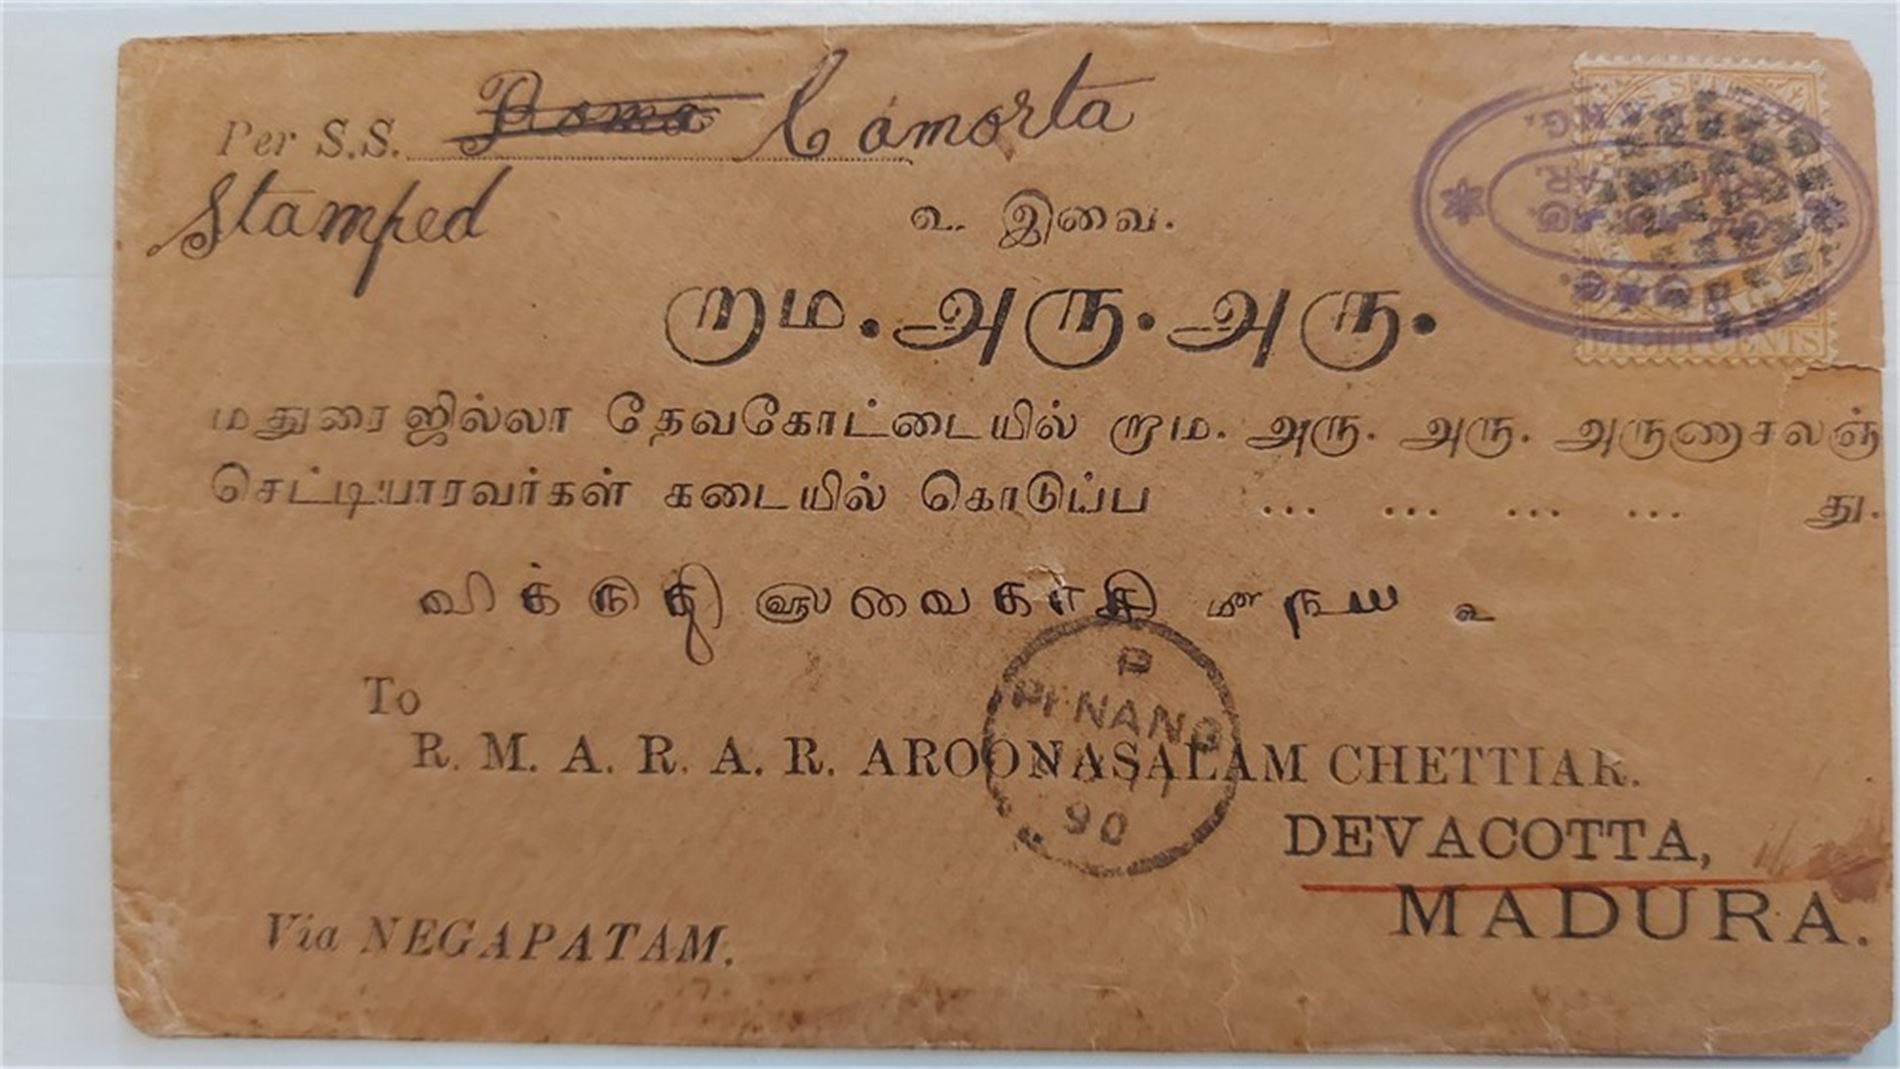 Per S.S. Roma Camorta
Stamped
உ. இவை.
றாம. அரு. அரு.
மதுரை ஜில்லா தேவகோட்டையில் றாம. அரு. அரு. அருணாசலஞ்
செட்டியாரவர்கள் கடையில் கொடுப்ப ... ... ... ... து.
வைகாசி
To
P
PENANG
R. M. A. R. A. R. AROONASALAM CHETTIAR.
90
DEVACOTTA,
MADURA.
Via NEGAPATAM.
CENTS